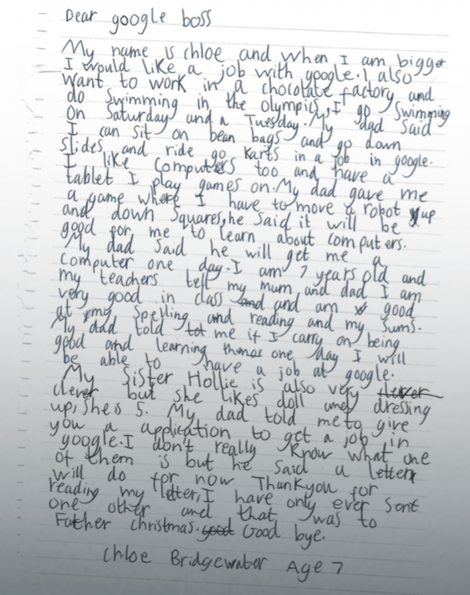 Dear google boss
My name is chloe and when I am bigger
I would like a job with google. I also
want to work in a chocolate factory and
do swimming in the olympics, I go Swimming
on Saturday and a Tuesday. My dad said
I can sit on bean bags and go down
slides and ride go karts in a job in google.
I like computers too and have a
tablet I play games on. My dad gave me
a game where I have to move a robot up
and down Squares, he said it will be
good for me to learn about computers.
My dad said he will get me a
computer one day. I am 7 years old and
my teachers tell my mum and dad I am
very good in class and and am good
at my spelling and reading and my sums.
My dad told me if I carry on being
good and learning one day I will
be able to have a job at google.
My Sister Hollie is also very clever
clever but she likes doll and dressing
up, she is 5. My dad told me to give
you a application to get a job in
google. I don't really know what one
of them is but he said a letter
will do for now Thankyou for
reading my letter, I have only ever sent
one other and that was to
Father christmas. good Good bye.
Chloe Bridgewater Age 7